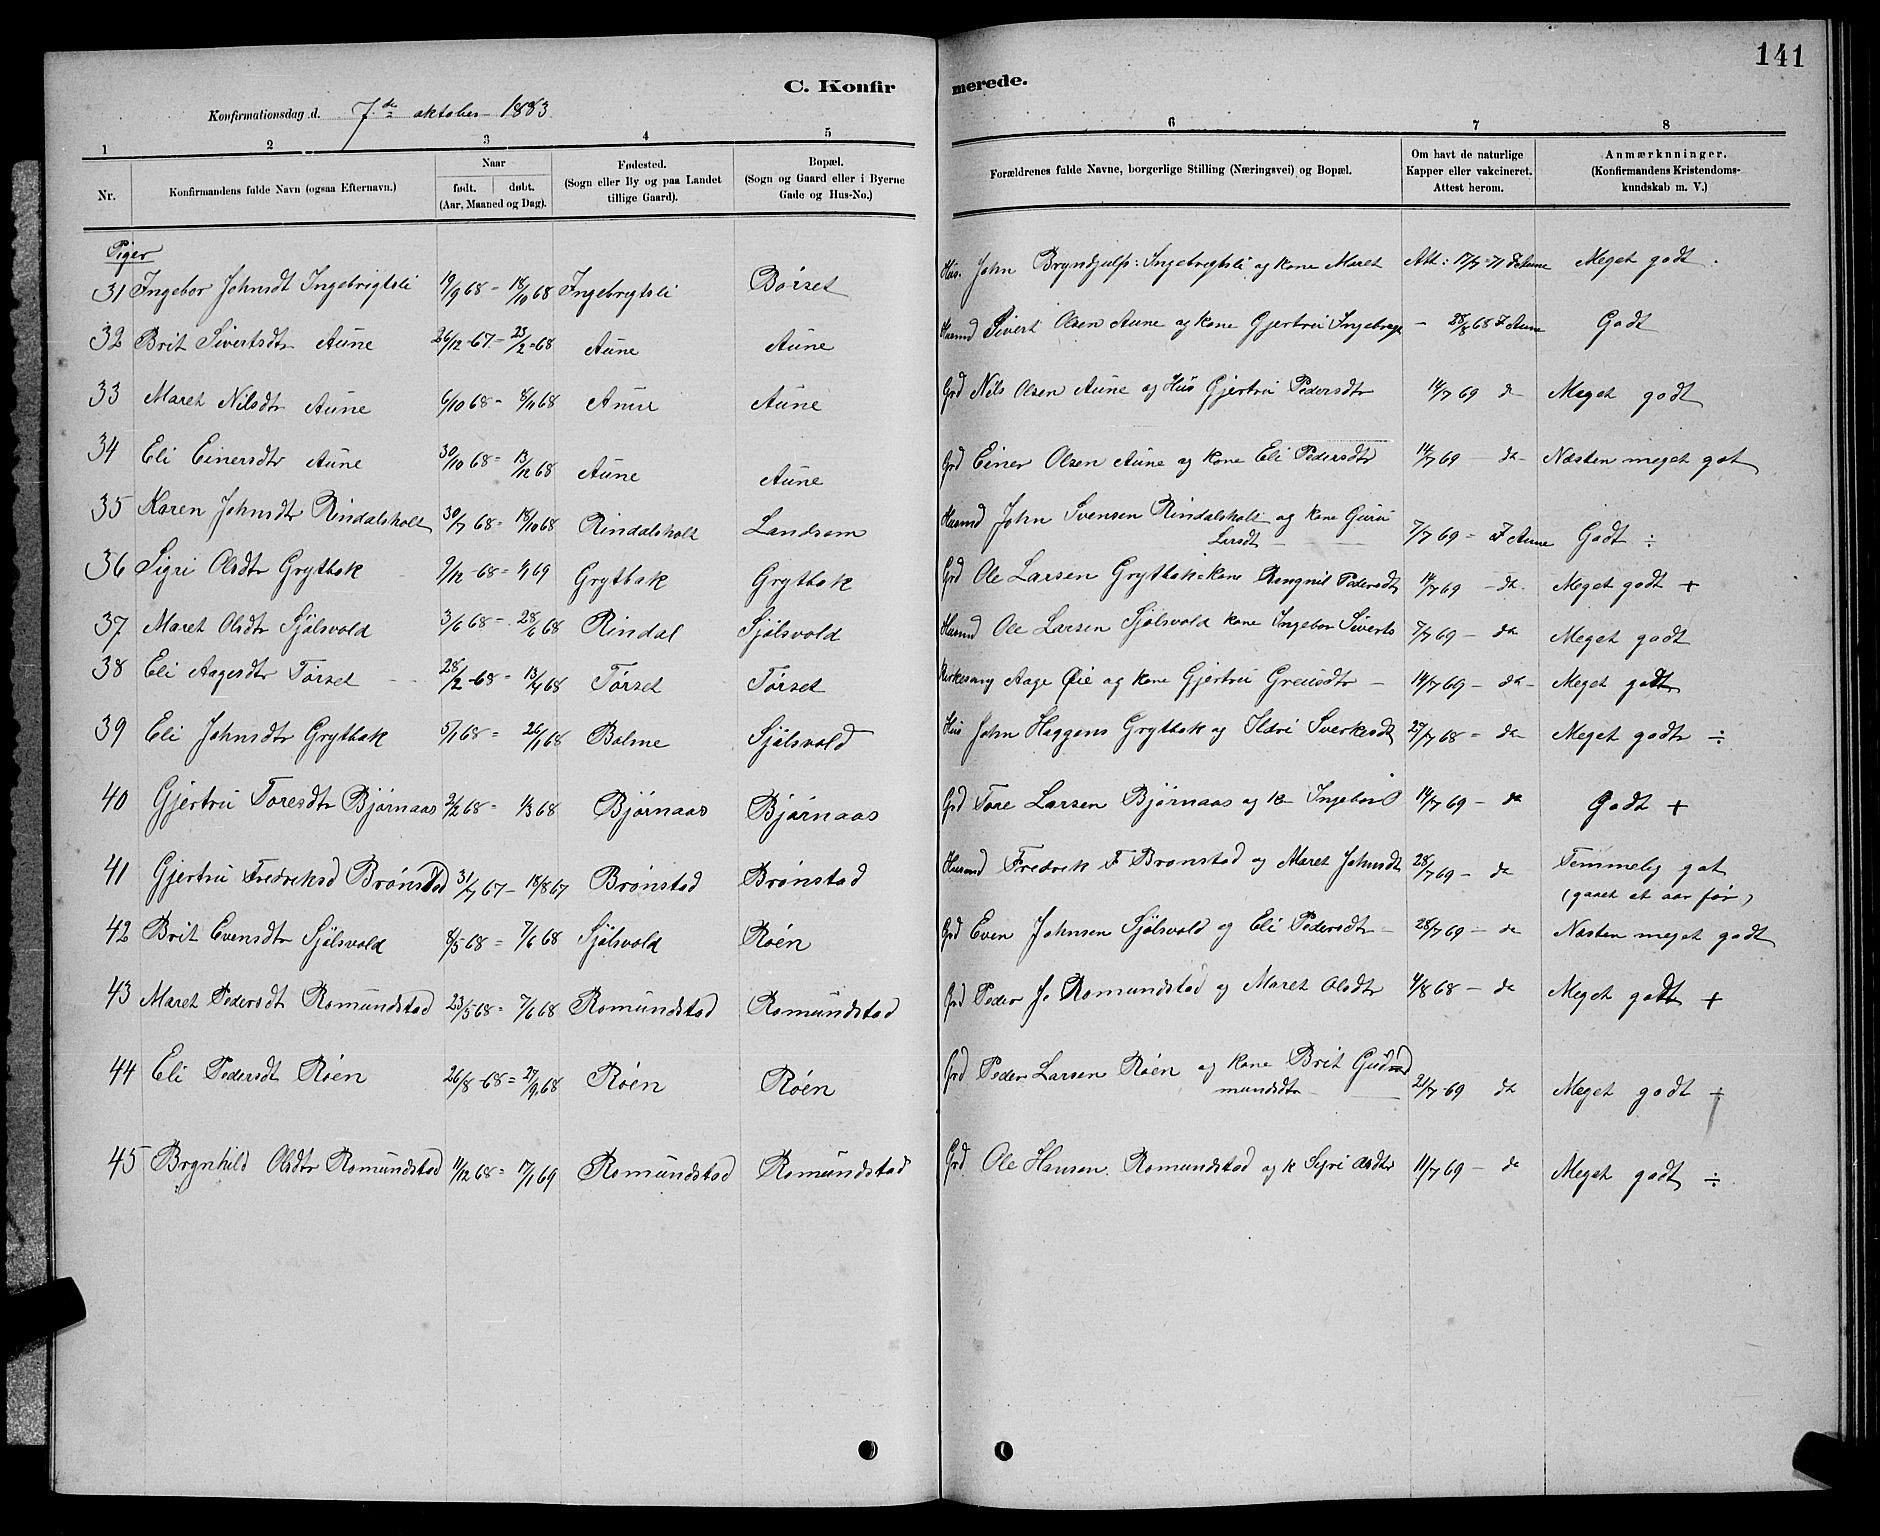 141
C. Konfirmerede.
Konfirmationsdag d. 7de oktober 1883
1 2 3 4 5 6 7 8
Nr. Konfirmandens fulde Navn (ogsaa Efternavn.) Naar født. døbt. (Aar, Maaned og Dag). Fødested. (Sogn eller By og paa Landet tillige Gaard). Bopæl. (Sogn og Gaard eller i Byerne Gade og Hus-No.) Forældrenes fulde Navne, borgerlige Stilling (Næringsvei) og Bopæl. Om havt de naturlige Kapper eller vakcineret. Attest herom. Anmærknninger. (Konfirmandens Kristendomskundskab m. V.)
Piger
31 Ingebor Johnsdt Ingebrigtsli 19/9 68 = 18/10 68 Ingebrigtsli Börset Hus. John Bryndjulfs: Ingebrigtsli og kone Maret Att: 17/7 71 F Aune Meget godt.
32 Brit Sivertsdtr Aune 26/12 -67 = 23/2 -68 Aune Aune Husmd Sivert Olsen Aune og kone Gjertru Ingebrigt – 28/8 68 F Aune Godt
33 Maret Nilsdtr Aune 6/10 68 = 8/11 68 Aune Aune Grd Nils Olsen Aune og Hus Gjertru Pedersdtr 14/7 69 do Meget godt
34 Eli Einersdtr Aune 30/10 68 = 13/12 68 Aune Aune Grd Einer Olsen Aune og kone Eli Pedersdtr 14/7 69 – do Næsten meget got
35 Karen Johnsdtr Rindalsholt 30/7 68 = 18/10 68 Rindalsholt Landsem Husmd John Svensen Rindalsholt og kone Guru Larsdt 7/7 69 = F Aune Godt ÷
36 Sigri Olsdtr Grytbak 9/12 -68 = 1/1 69 Grytbak Grytbak Grd Ole Larsen Grytbak - kone Rangnil Pedersdt 14/7 69 – do Meget godt +
37 Maret Olsdtr Sjölsvold 3/6 68 = 28/6 68 Rindal Sjölsvold Husmd Ole Larsen Sjölsvold kone Ingebor Siverts 7/7 69 – do Meget godt
38 Eli Aagesdtr Törset 28/2 -68 = 13/4 68 Törset Törset Kirkesang Aage Øie og kone Gjertru Greusdtr – 14/7 69 – do Meget godt
39 Eli Johnsdtr Grytbak 5/1 68 = 26/1 68 Bolme Sjölsvold Hus John Haggens Grytbak og Ildri Sverkesdt 27/7 68 = do Meget godt ÷
40 Gjertru Toresdtr Bjørnaas 2/2 68 = 1/3 68 Bjørnaas Bjørnaas Grd Tore Larsen Bjørnaas og k Ingebor 14/7 69 – do Godt +
41 Gjertru Fredriksd Brønstad 31/7 67 – 18/8 67 Brönstad Brönstad Husmd Fredrik F Brønstad og Maret Johnsdt 28/7 69 – do Temmelig got (gaaet et aar før)
42 Brit Evensdtr Sjölsvold 8/5 68 = 7/6 68 Sjölsvold Röen Grd Even Johnsen Sjölsvold og Eli Pedersdtr – 28/7 69 – do Næsten meget godt
43 Maret Pedersdt Romundstad 23/5 68 = 7/6 68 Romundstad Romundstad Grd Peder J. Romundstad og Maret Olsdtr 4/8 68 – do Meget godt +
44 Eli Pedersdt Röen 26/8 -68 = 27/9 68 Röen Röen Grd Peder Larsen Röen og kone Brit Gudmundsdtr – 21/7 -69 do Meget godt +
45 Brynhild Olsdtr Romundstad 11/12 68 = 17/1 69 Romundstad Romundstad Grd Ole Hansen Romundstad og k Sigri Olsdtr 11/7 69 – do Meget godt ÷